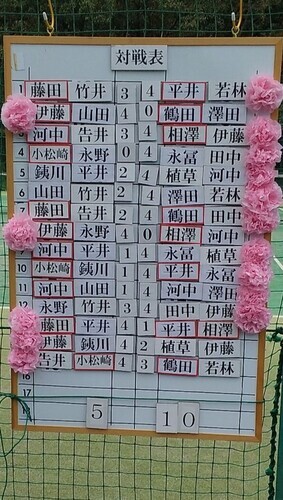 対戦表
1 藤田 竹井 3 4 平井 若林
伊藤 山田 4 0 鶴田 澤田
河中 告井 3 4 相澤 伊藤
4 小松崎 永野 0 4 永冨 田中
5 銕川 平井 2 4 植草 河中
6 山田 竹井 2 4 澤田 若林
藤田 告井 2 4 鶴田 田中
伊藤 永野 4 0 相澤 河中
河中 平井 1 4 永冨 植草
10 小松崎 銕川 1 4 平井 永冨
11 河中 山田 1 4 河中 澤田
12 永野 竹井 3 4 田中 伊藤
藤田 平井 4 1 平井 相澤
伊藤 銕川 4 2 植草 伊藤
告井 小松崎 4 3 鶴田 若林
16
17
5 10